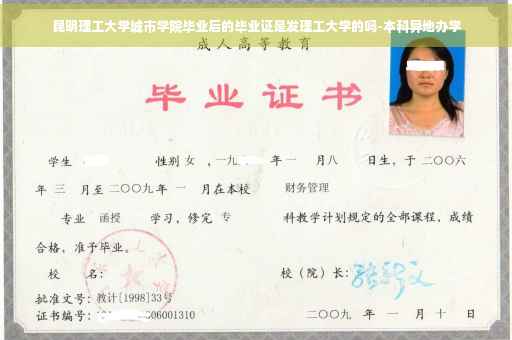 昆明理工大学城市学院毕业后的毕业证是发理工大学的吗-本科异地办学
成人高等教育
毕业证书
学生 性别 女 ,一九 年一 月八 日生，于二〇〇六
年 三 月至二〇〇九年 一 月在本校 财务管理
专业 函授 学习，修完 专 科教学计划规定的全部课程，成绩
合格，准予毕业。
校 名： 校（院）长：
批准文号：教计[1998]33号
证书编号： 006001310 二〇〇九 年 一 月 十 日